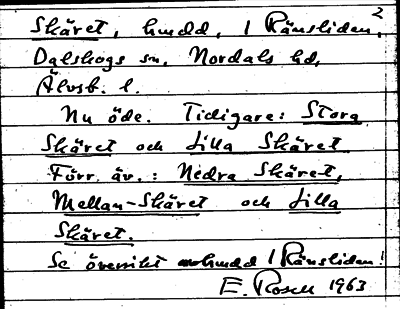 Skäret, hmdd, 1 Ränsliden,²
Dalskogs sn, Nordals hd,
Älvsb. l.
Nu öde. Tidigare: Stora
Skäret och Lilla Skäret
Förr äv.: Nedra Skäret,
Mellan-Skäret och Lilla
Skäret.
Se översikt hmdd 1 Ränsliden!
E. Rosell 1963